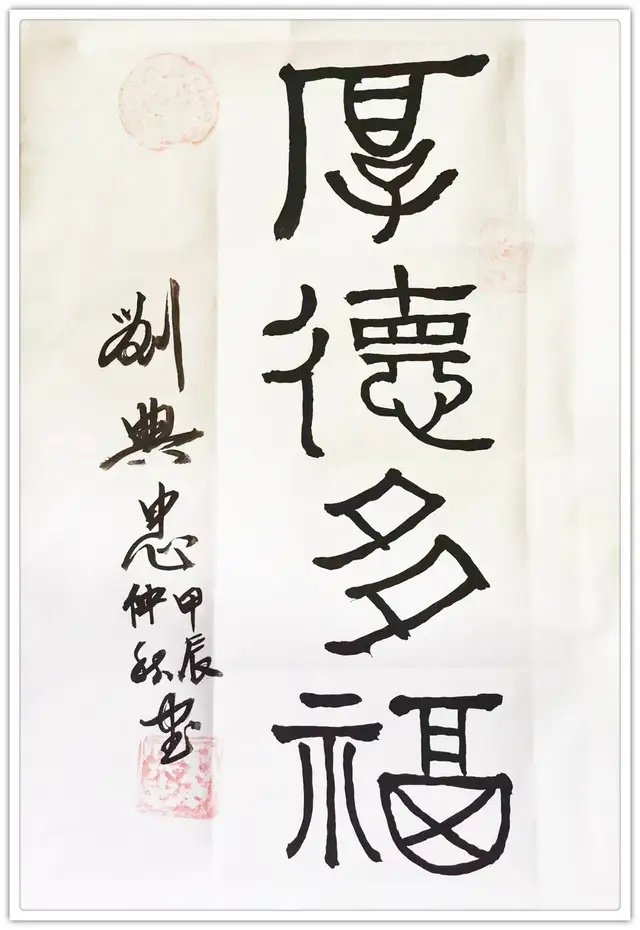 厚德多福
劉典忠
甲辰
仲秋
书